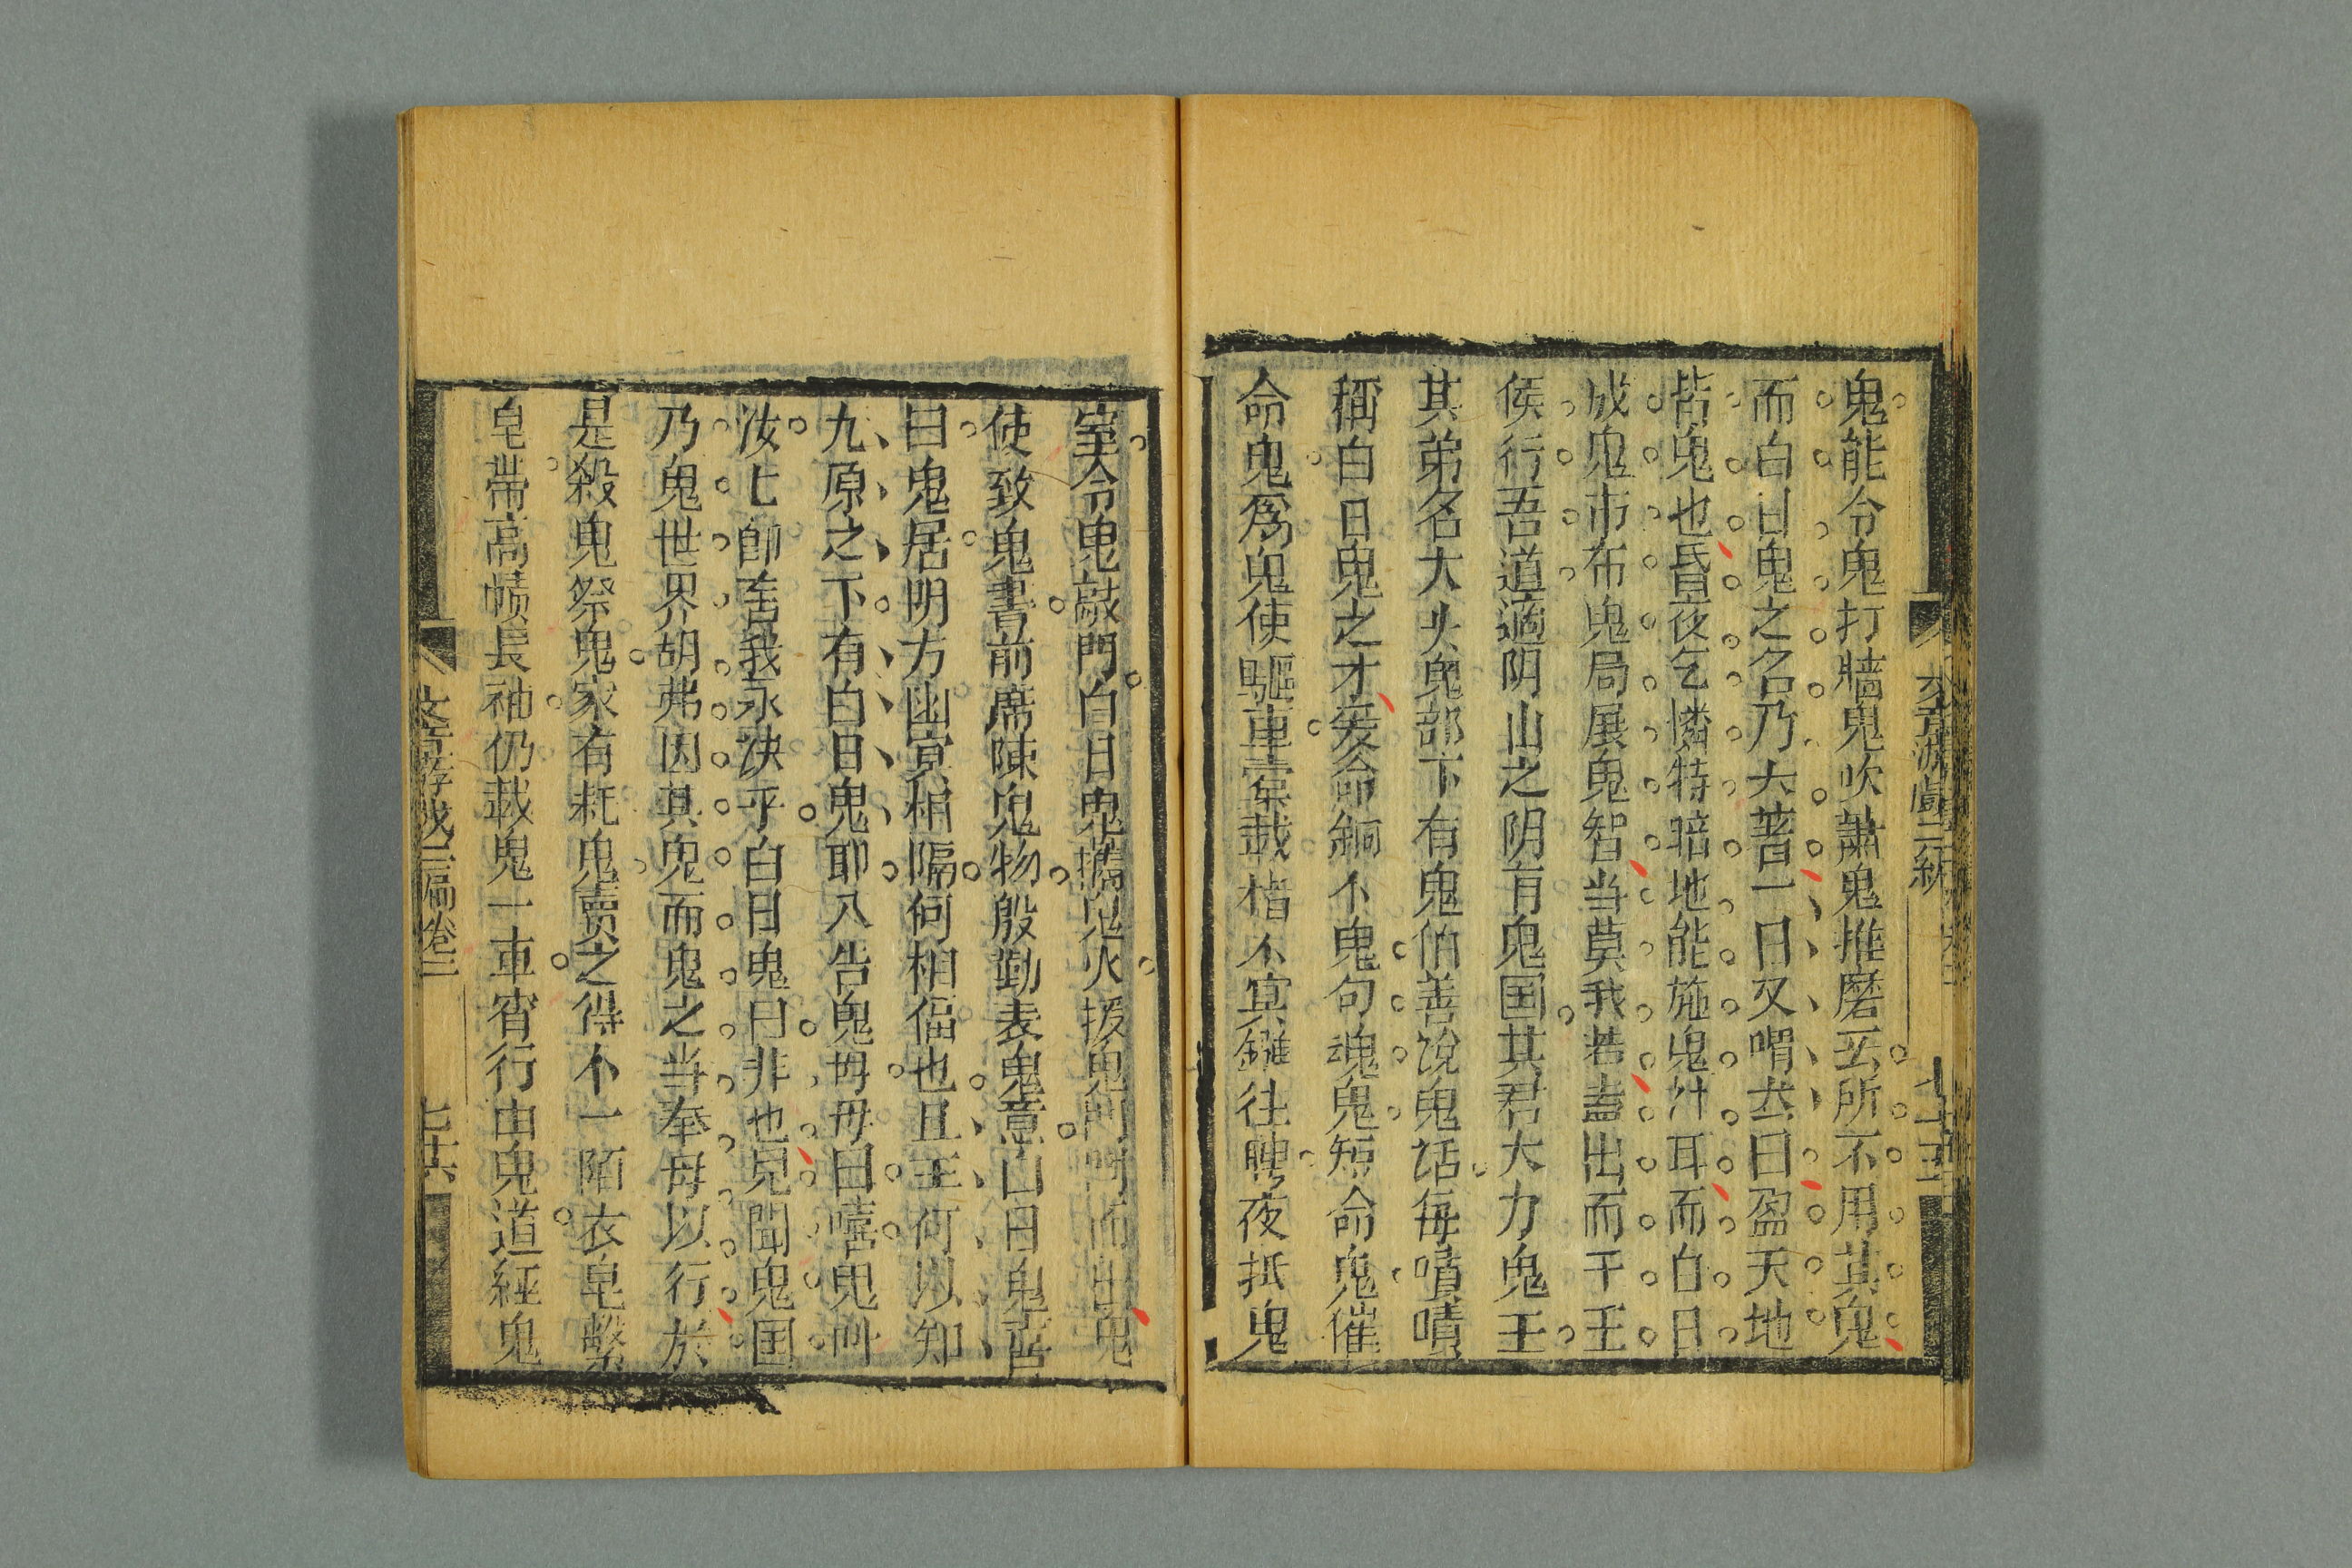 鬼能令鬼打牆鬼吹鬼推磨云所不用其鬼
而白日鬼之名乃大著一日又喟然曰盈天地
皆鬼也昏夜乞憐特暗地能施鬼汁耳而白日
成鬼市布鬼局展鬼智当莫我若盍出而干王
侯行吾道適阴山之阴有鬼国其君大力鬼王
其弟名大头鬼部下有鬼伯善說鬼話每嘖嘖
稱白日鬼之才爰命鉶不鬼句魂鬼短命鬼催
命鬼爲鬼使驅車載楮不寅鏹往聘夜抵鬼
室令鬼敲門白日鬼携鬼火援鬼門而出鬼
使致鬼書前席陳鬼物殷勤表鬼意白日鬼
曰鬼居阴方幽冥相隔何相偪也且王何以知
九原之下有白日鬼耶入告鬼母母曰嘻鬼叫
汝七郎舍我永决乎白日鬼曰非也兒聞鬼国
乃鬼世界胡弗因其鬼而鬼之当奉母以行於
是殺鬼祭鬼家有耗鬼賣之得不一陌衣皂繫
皂帶高幘長袖仍载鬼一車宵行由鬼道經鬼
文章游戲三編卷三
七十五
七十六